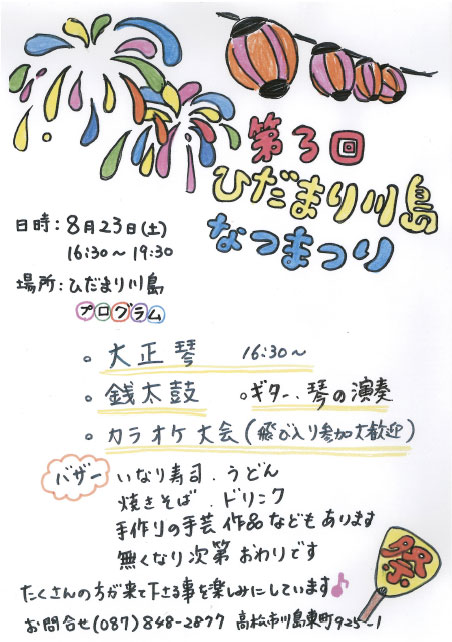 第3回
ひだまり川島
なつまつり
日時：8月23日(土)
16:30～19:30
場所：ひだまり川島
プログラム
。大正琴 16:30～
。銭太鼓 。ギター、琴の演奏
。カラオケ大会（飛び入り参加大歓迎）
バザー いなり寿司．うどん
焼きそば．ドリンク
手作りの手芸作品などもあります
無くなり次第おわりです
たくさんの方が来て下さる事を楽しみにしています♪
お問合せ(087)848-2877 高松市川島東町925-1
祭